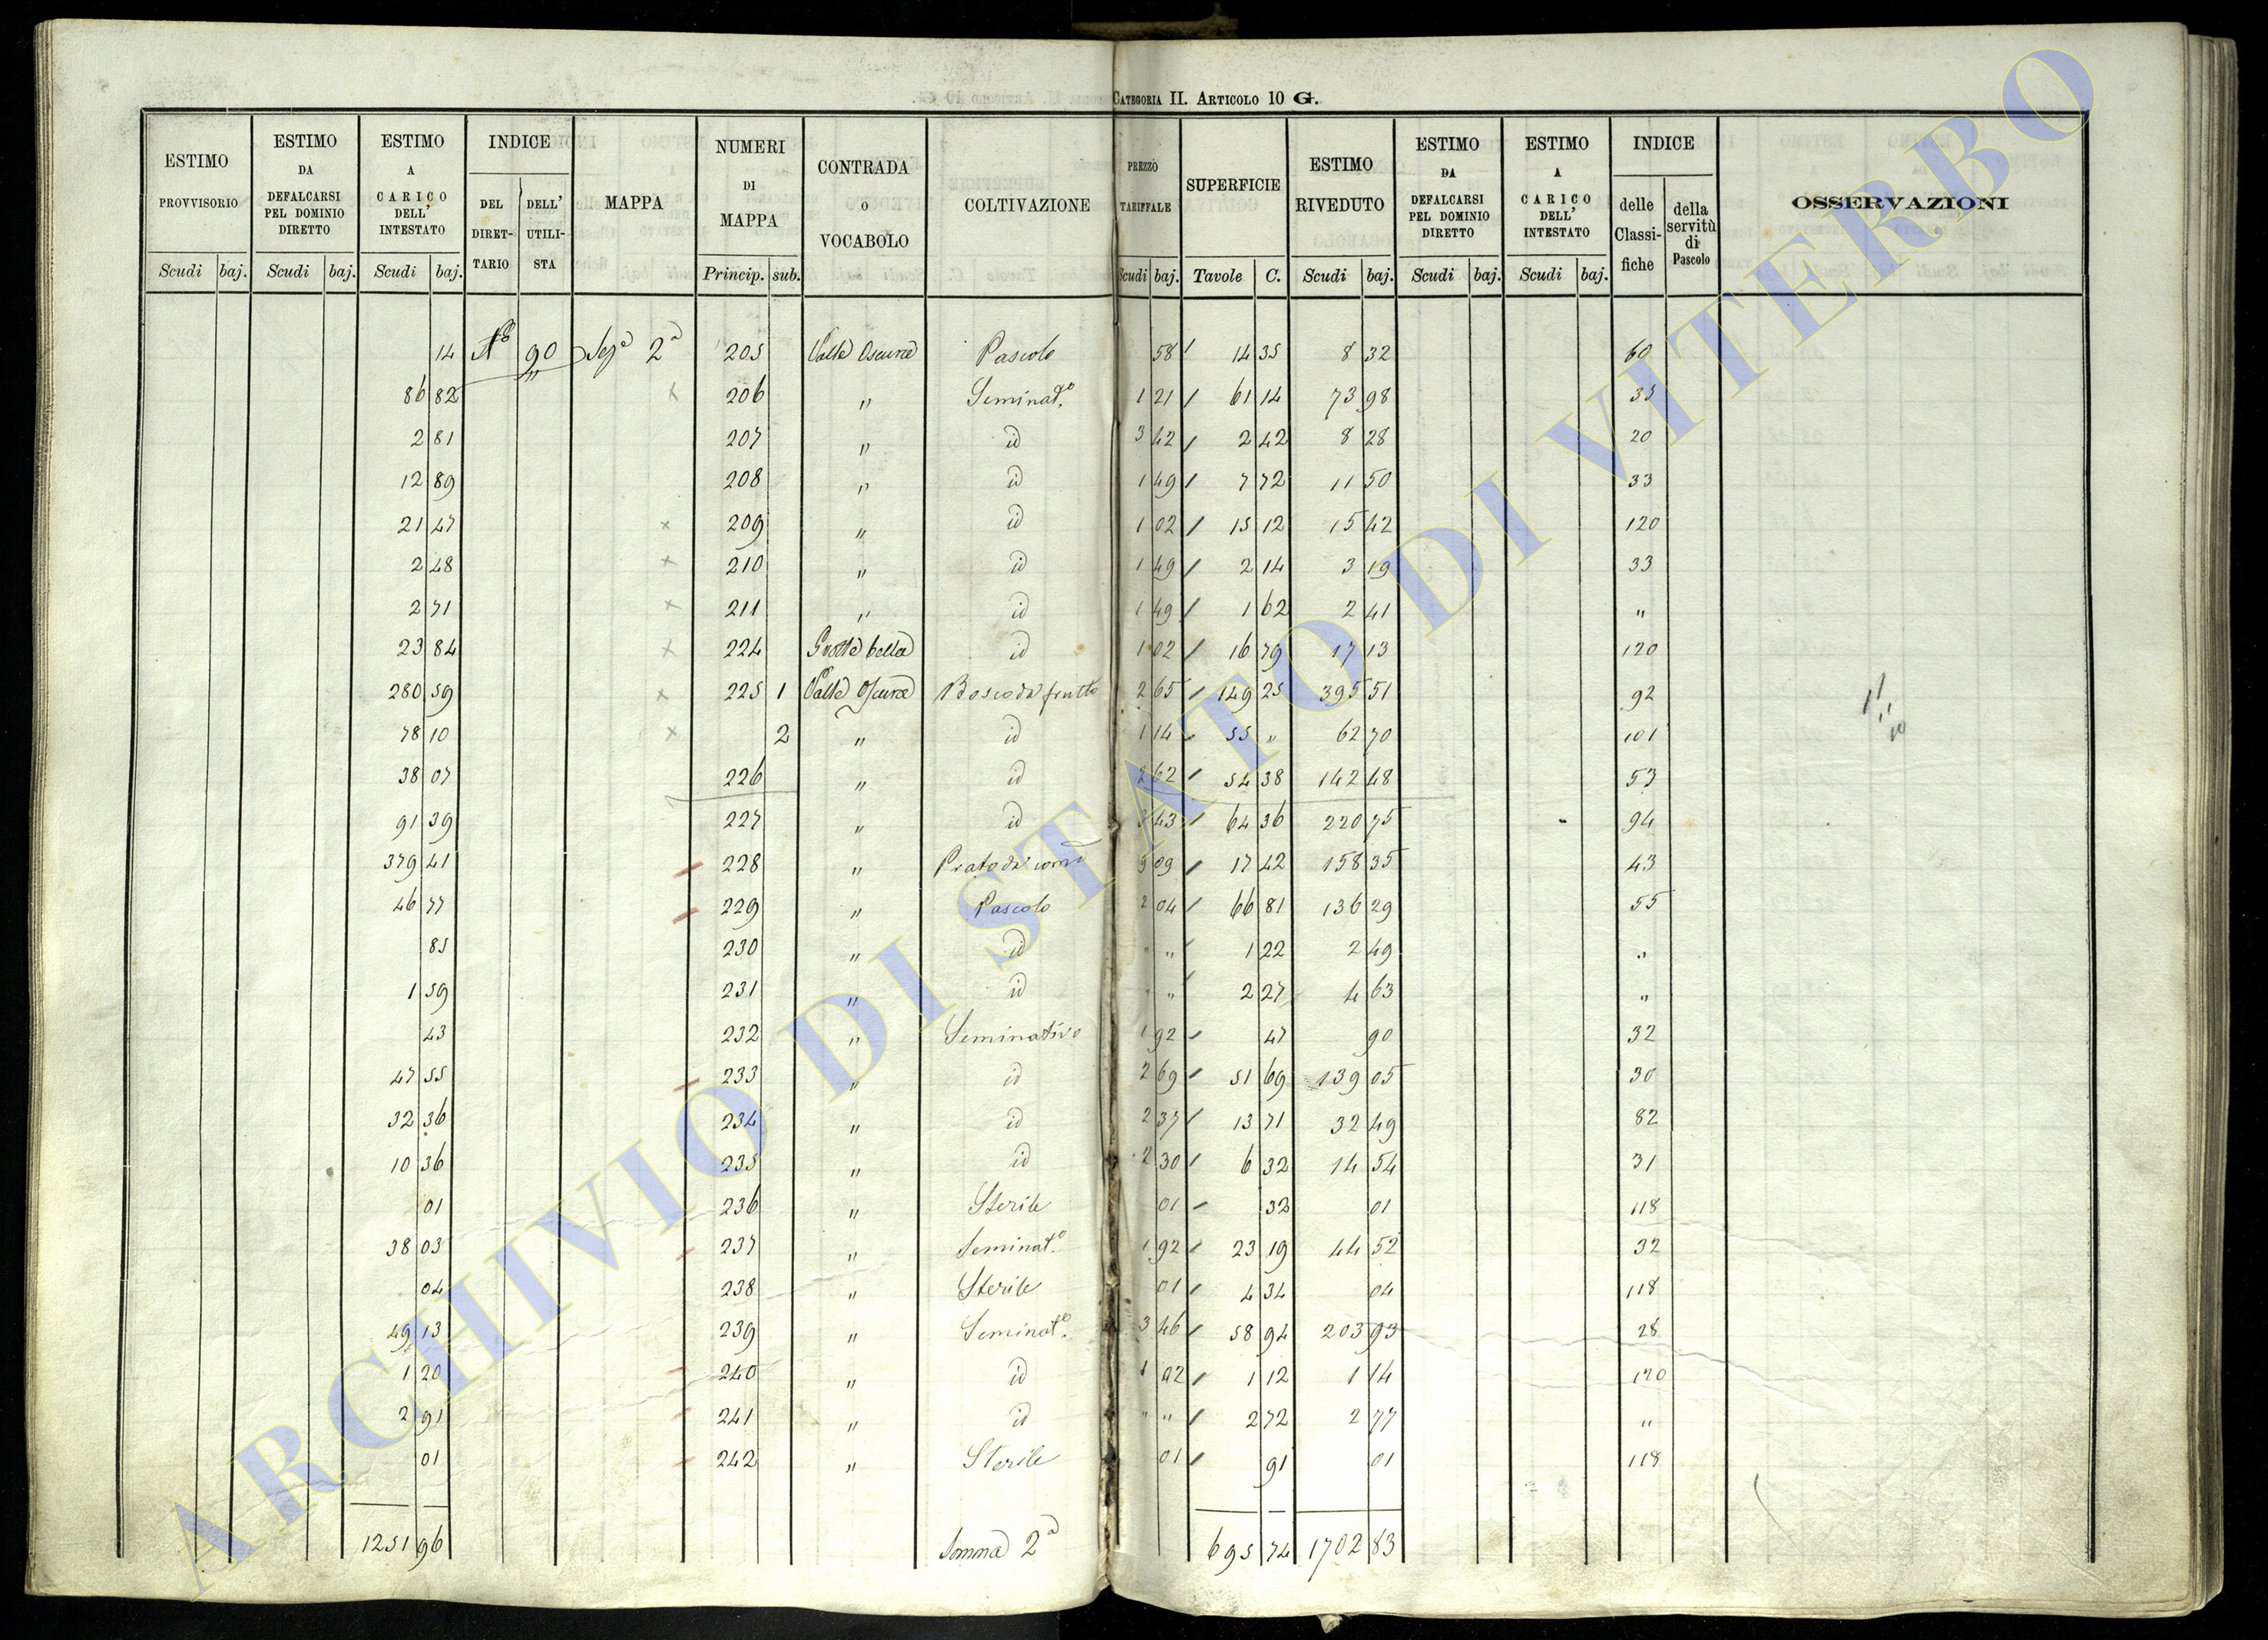 CATEGORIA II. ARTICOLO 10 G.
ESTIMO PROVVISORIO | ESTIMO DA DEFALCARSI PEL DOMINIO DIRETTO | ESTIMO A CARICO DELL' INTESTATO | INDICE DEL DIRETTARIO | DELL' UTILISTA | MAPPA | NUMERI DI MAPPA | CONTRADA O VOCABOLO | COLTIVAZIONE | PREZZO TARIFFALE | SUPERFICIE | ESTIMO RIVEDUTO | ESTIMO DA DEFALCARSI PEL DOMINIO DIRETTO | ESTIMO A CARICO DELL' INTESTATO | INDICE delle Classifiche | della servitù di Pascolo | OSSERVAZIONI
Scudi baj. | Scudi baj. | Scudi baj. | Princip. sub. | Scudi baj. | Tavole C. | Scudi baj. | Scudi baj. | Scudi baj.
14 | 90 | Sez.a 2a | 205 | Valle Oscura | Pascolo | 58 | 14 35 | 8 32 | 60
86 82 | " | 206 | " | Seminat.o | 1 21 | 61 14 | 73 98 | 35
2 81 | 207 | " | id | 3 42 | 2 42 | 8 28 | 20
12 89 | 208 | " | id | 1 49 | 7 72 | 11 50 | 33
21 47 | 209 | " | id | 1 02 | 15 12 | 15 42 | 120
2 48 | 210 | " | id | 1 49 | 2 14 | 3 19 | 33
2 71 | 211 | " | id | 1 49 | 1 62 | 2 41 | "
23 84 | 224 | Grotta bella | id | 1 02 | 16 79 | 17 13 | 120
280 59 | 225 1 | Valle Oscura | Bosco da frutto | 2 65 | 149 25 | 395 51 | 92
78 10 | 2 | " | id | 1 14 | 55 " | 62 70 | 101
38 07 | 226 | " | id | 2 62 | 54 38 | 142 48 | 53
91 39 | 227 | " | id | 3 43 | 64 36 | 220 75 | 94
379 41 | 228 | " | Prato da | 9 09 | 17 42 | 158 35 | 43
46 77 | 229 | " | Pascolo | 2 04 | 66 81 | 136 29 | 55
85 | 230 | " | id | " " | 1 22 | 2 49 | "
1 59 | 231 | " | id | " " | 2 27 | 4 63 | "
43 | 232 | " | Seminativo | 1 92 | 47 | 90 | 32
47 55 | 233 | " | id | 2 69 | 51 69 | 139 05 | 30
32 36 | 234 | " | id | 2 37 | 13 71 | 32 49 | 82
10 36 | 235 | " | id | 2 30 | 6 32 | 14 54 | 31
01 | 236 | " | Sterile | 01 | 32 | 01 | 118
38 03 | 237 | " | Seminat.o | 1 92 | 23 19 | 44 52 | 32
04 | 238 | " | Sterile | 01 | 4 34 | 04 | 118
49 13 | 239 | " | Seminat.o | 3 46 | 58 94 | 203 93 | 28
1 20 | 240 | " | id | 1 02 | 1 12 | 1 14 | 120
2 91 | 241 | " | id | " " | 2 72 | 2 77 | "
01 | 242 | " | Sterile | 01 | 91 | 01 | 118
1251 96 | Somma 2a | 695 74 | 1702 83
ARCHIVIO DI STATO DI VITERBO